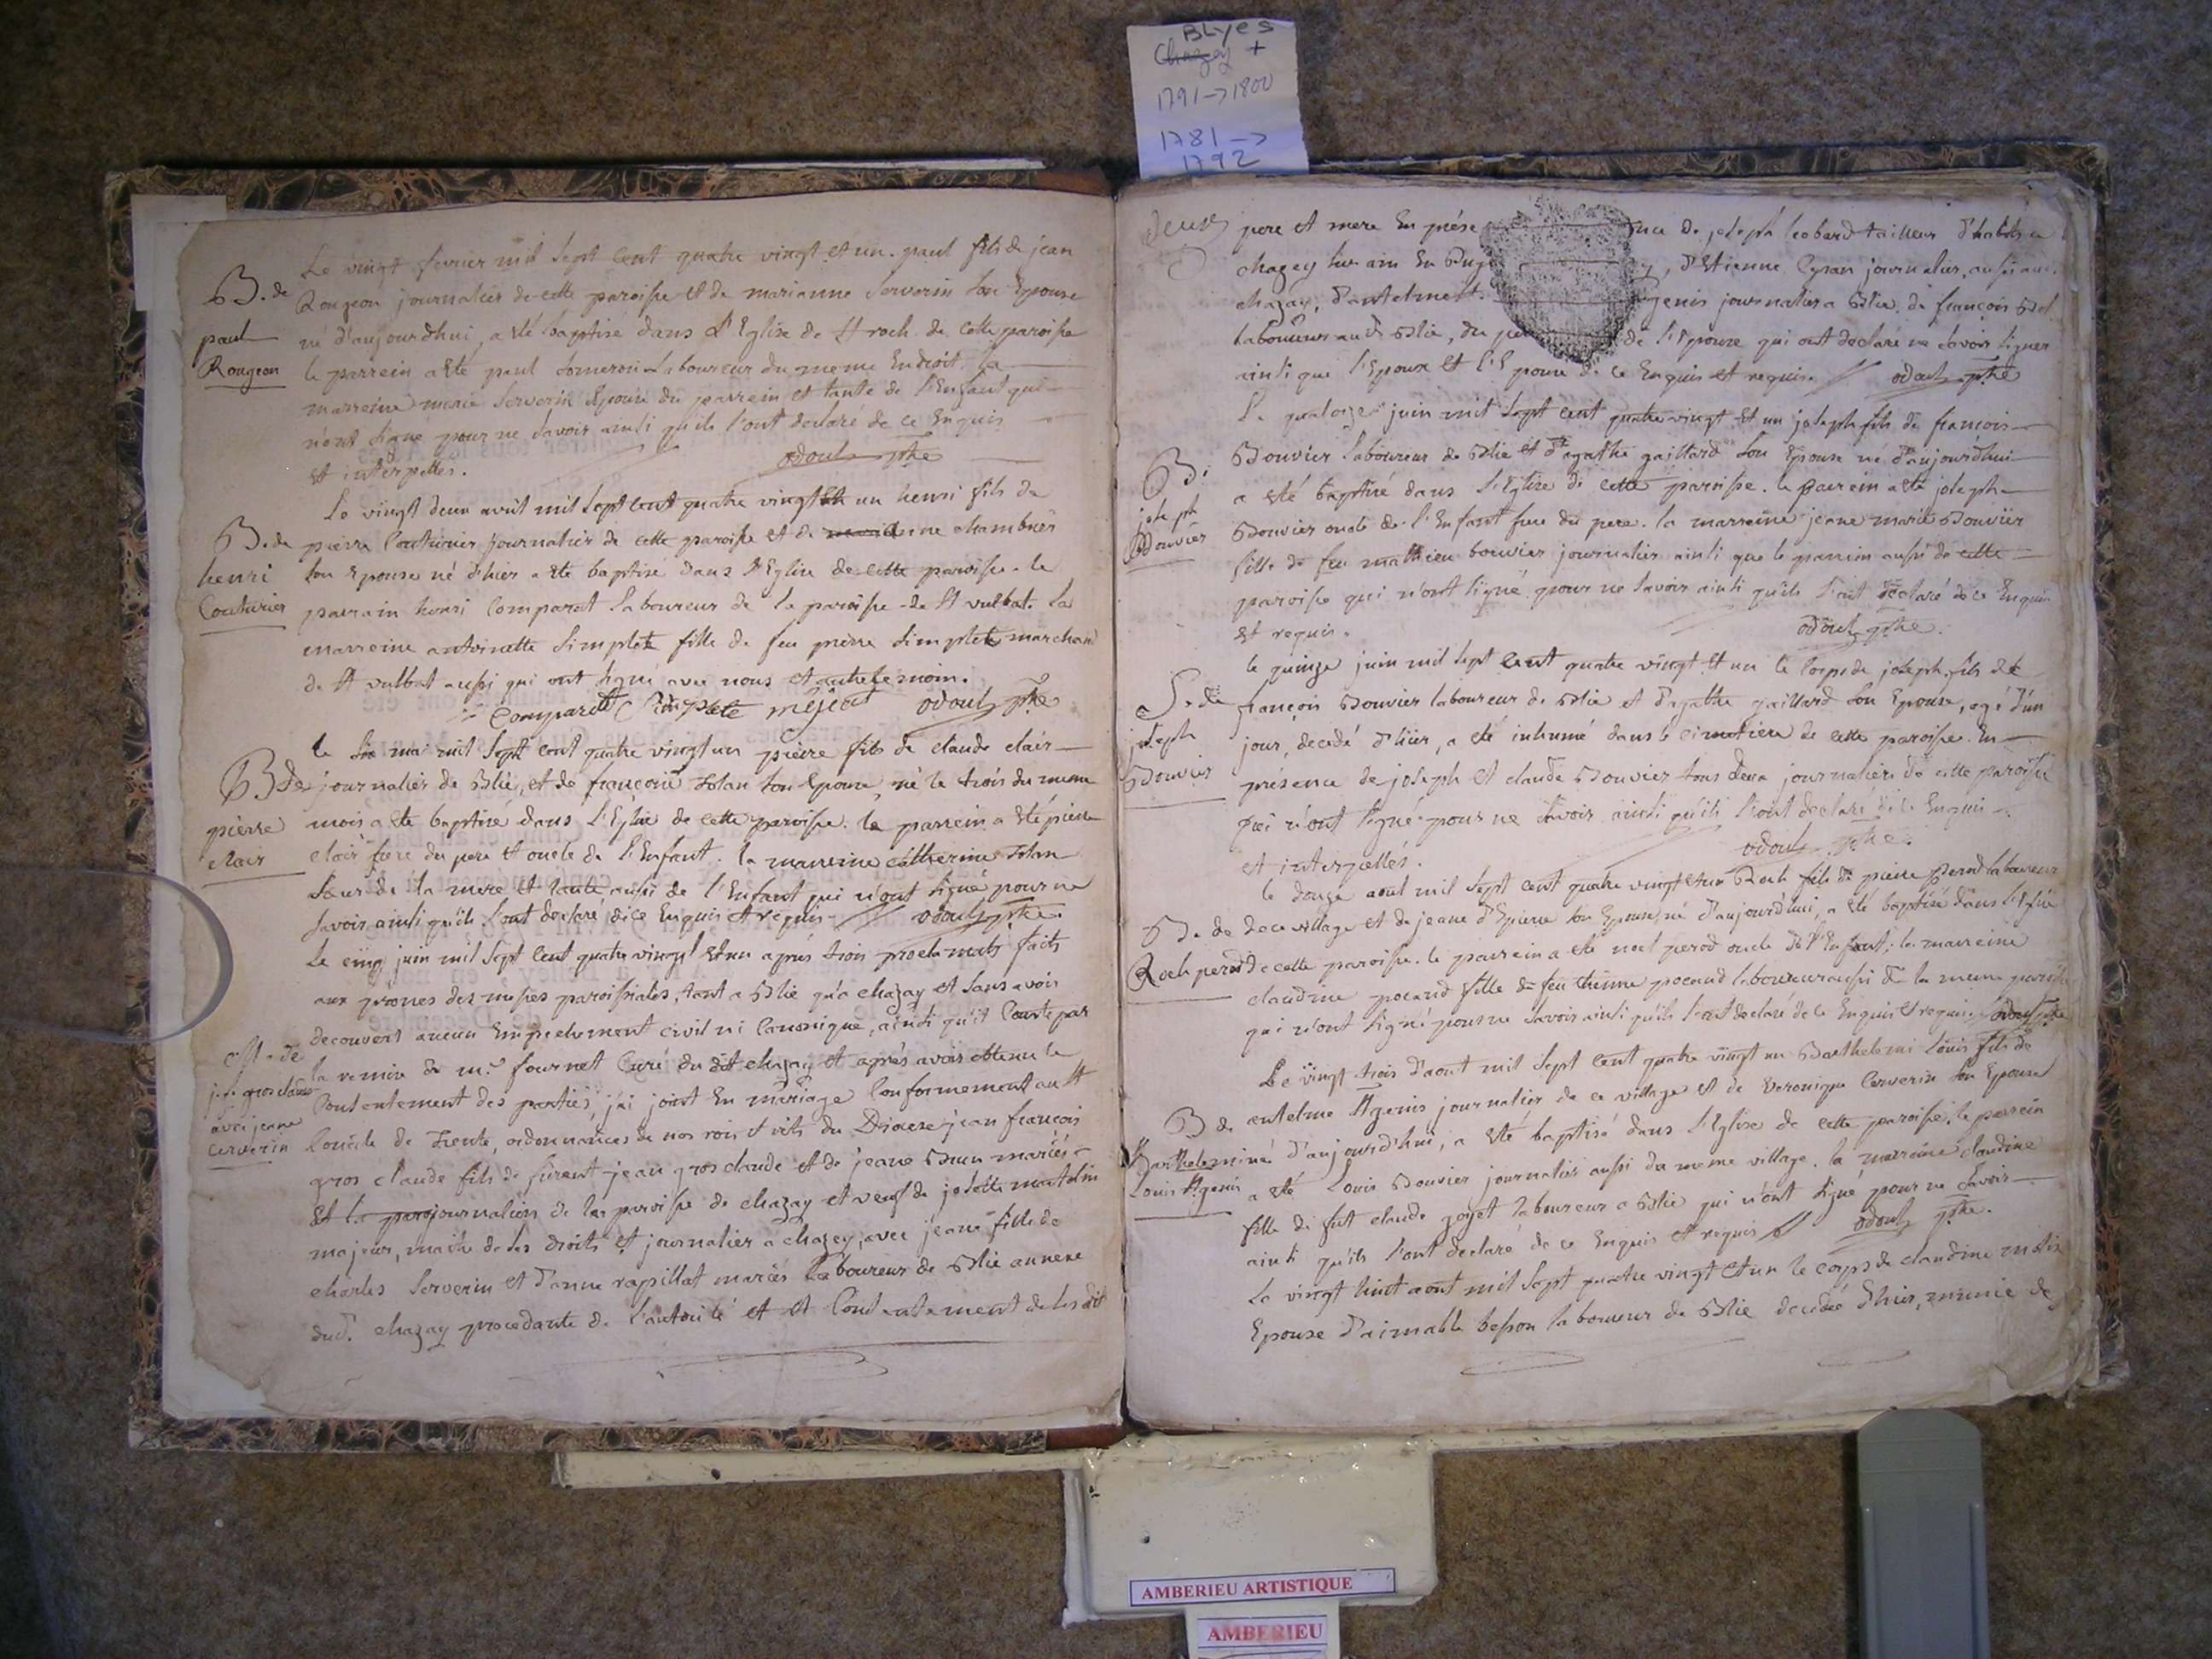 BLyes
Chazey +
1791->1800
1781->
1792
Le vingt fevrier mil Sept Cent quatre vingt et un. paul fils de jean
B. de
paul
Rougeon
Rougeon journalier de cette paroisse et de marianne Serverin son Epouse
né d'aujourdhui, a eté baptisé dans l'Eglise de St roch de cette paroisse
le parrein a eté paul laboureur du meme Endroit. la
marreine marie Serverin Epouse du parrein et tante de l'Enfant qui
n'ont signé pour ne savoir ainsi qu'ils l'ont declaré de ce Enquis
et interpellés. odoul ptre
B. de
henri
Couturier
Le vingt deux avril mil Sept Cent quatre vingt et un henri fils de
pierre Couturier journalier de cette paroisse et de chambrier
son Epouse né d'hier a eté baptisé dans l'Eglise de cette paroisse. le
parrain henri Comparat laboureur de la paroisse de St vulbat. la
marreine antoinette Simplet fille de feu pierre Simplet marchand
de St vulbat aussi qui ont signé avec nous et
Comparat odoul ptre
B. de
pierre
clair
le Six mai mil Sept Cent quatre vingt un pierre fils de claude clair
journalier de Blie, et de françoise son Epouse, né le trois du meme
mois a eté baptisé dans l'Eglise de cette paroisse. le parrein a eté pierre
clair frere du pere et oncle de l'Enfant. la marreine catherine
Soeur de la mere et tante aussi de l'Enfant qui n'ont signé pour ne
savoir ainsi qu'ils l'ont declaré de ce Enquis et requis. odoul ptre.
M. de
gros claude
avec jeane
Cerverin
Le cinq juin mil Sept Cent quatre vingt et un après trois proclamats faits
aux prones des messes paroissiales, tant a Blie qu'a chazay et sans avoir
decouvert aucun Empechement civil ni Canonique, ainsi qu'il Conste par
la remise de mr. fournet Curé du dit chazay et après avoir obtenu le
Consentement des parties, j'ai joint En mariage Conformement au St
Concile de Trente, ordonnances de nos rois et rits du Diocese jean françois
gros claude fils de furent jean gros claude et de jeane Brun mariés
et la journaliers de la paroisse de chazay et veuf de josette
majeur, maitre de ses droits et journalier a chazey, avec jeane fille de
charles Serverin et d'anne rapillat mariés laboureur de Blie annexe
dud. chazay procedante de l'autorité et et Consentement de ses dit
deux
pere et mere En prése nce de joseph leobard tailleur d'habits a
chazey sur ain En Buge y, d'Etienne Cyran journalier, aussi aud.
chazay, d'antelme genis journalier a Blie, de françois
laboureur aud Blie, du de l'Epouse qui ont declaré ne savoir signer
ainsi que l'Epoux et l'Epouse de ce Enquis et requis. odoul ptre
B.
joseph
Bouvier
Le quatorze juin mil Sept Cent quatre vingt et un joseph fils de françois
Bouvier laboureur de Blie et d'agathe gaillard son Epouse né d'aujourdhui
a eté baptisé dans l'Eglise de cette paroisse. le parrein a eté joseph
Bouvier oncle de l'Enfant frere du pere. la marreine jeane marie Bouvier
fille de feu mathieu bouvier journalier ainsi que le parrein aussi de cette
paroisse qui n'ont signé pour ne savoir ainsi qu'ils l'ont declaré de ce Enquis
et requis. odoul ptre.
S. de
joseph
Bouvier
le quinze juin mil Sept Cent quatre vingt et un le Corps de joseph fils de
françois Bouvier laboureur de Blie et d'agathe gaillard son Epouse, agé d'un
jour, decedé d'hier, a eté inhumé dans le cimetiere de cette paroisse. En
présence de joseph et claude Bouvier tous deux journaliers de cette paroisse
qui n'ont signé pour ne savoir ainsi qu'ils l'ont declaré de ce Enquis
et interpellés. odoul ptre.
B. de
Roch perod
le douze aout mil Sept Cent quatre vingt et un Roch fils de pierre perod laboureur
de ce village et de jeane d'Epierre son Epouse, né d'aujourd'hui, a eté baptisé dans l'Eglise
de cette paroisse. le parrein a eté noel perod oncle de l'Enfant; la marreine
claudine pocaud fille de feu thienne pocaud laboureur aussi de la meme paroisse
qui n'ont signé pour ne savoir ainsi qu'ils l'ont declaré de ce Enquis et requis. odoul ptre
B de
Barthelemi
Louis Agenis
Le vingt trois d'aout mil Sept Cent quatre vingt un Barthelemi Louis fils de
antelme Agenis journalier de ce village et de veronique Cerverin son Epouse
né d'aujourd'hui, a eté baptisé dans l'Eglise de cette paroisse, le parrein
a eté Louis Bouvier journalier aussi du meme village. la marreine claudine
fille de fut claude goyet laboureur a Blie qui n'ont signé pour ne savoir
ainsi qu'ils l'ont declaré de ce Enquis et requis odoul ptre.
Le vingt huit aout mil Sept quatre vingt et un le corps de claudine
Epouse d'aimable besson laboureur de Blie decedée d'hier, munie de
AMBERIEU ARTISTIQUE
AMBERIEU